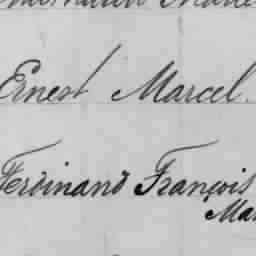 Ernest Marcel.
Ferdinand François